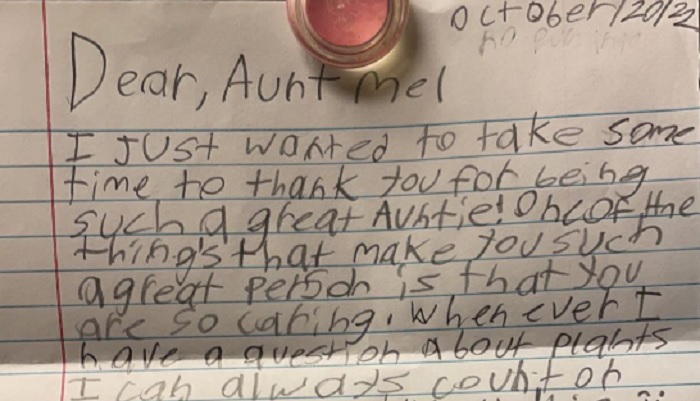 October/20/22
Dear, Aunt Mel
I JUST wanted to take some
time to thank you for being
such a great Auntie! One of the
thing's that make you such
a great person is that you
are so caring. When ever I
have a question about plants
I can always count on